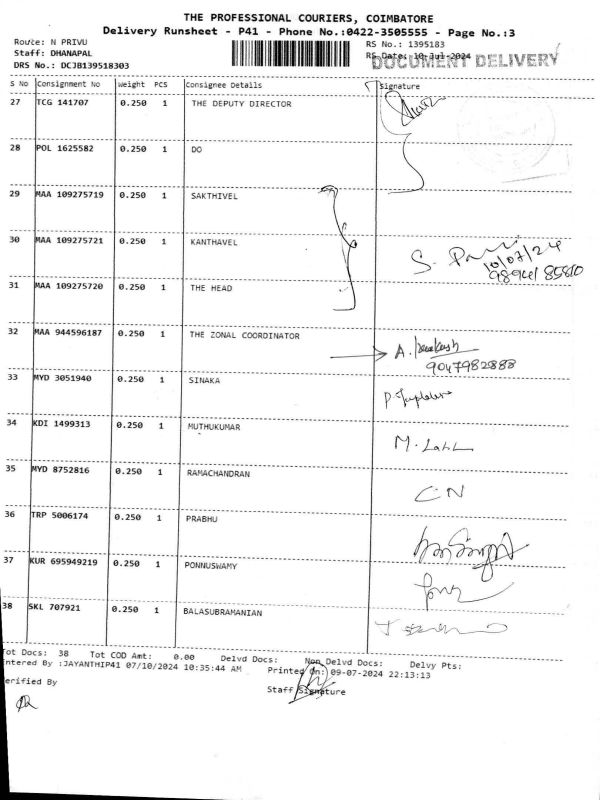 THE PROFESSIONAL COURIERS, COIMBATORE
Delivery Runsheet - P41 - Phone No.:0422-3505555 - Page No.:3
Route: N PRIVU
RS No.: 1395183
Staff: DHANAPAL
RS Date: 10-Jul-2024
DOCUMENT DELIVERY
DRS No.: DCJB139518303
S No Consignment No Weight PCS Consignee Details Signature
27 TCG 141707 0.250 1 THE DEPUTY DIRECTOR
28 POL 1625582 0.250 1 DO
29 MAA 109275719 0.250 1 SAKTHIVEL
30 MAA 109275721 0.250 1 KANTHAVEL
10/07/24
31 MAA 109275720 0.250 1 THE HEAD
32 MAA 944596187 0.250 1 THE ZONAL COORDINATOR
9047982888
33 MYD 3051940 0.250 1 SINAKA
34 KDI 1499313 0.250 1 MUTHUKUMAR
35 MYD 8752816 0.250 1 RAMACHANDRAN
CN
36 TRP 5006174 0.250 1 PRABHU
37 KUR 695949219 0.250 1 PONNUSWAMY
38 SKL 707921 0.250 1 BALASUBRAMANIAN
Tot Docs: 38 Tot COD Amt: 0.00 Delvd Docs: Non Delvd Docs: Delvy Pts:
ntered By :JAYANTHIP41 07/10/2024 10:35:44 AM Printed On: 09-07-2024 22:13:13
erified By
Staff Signature